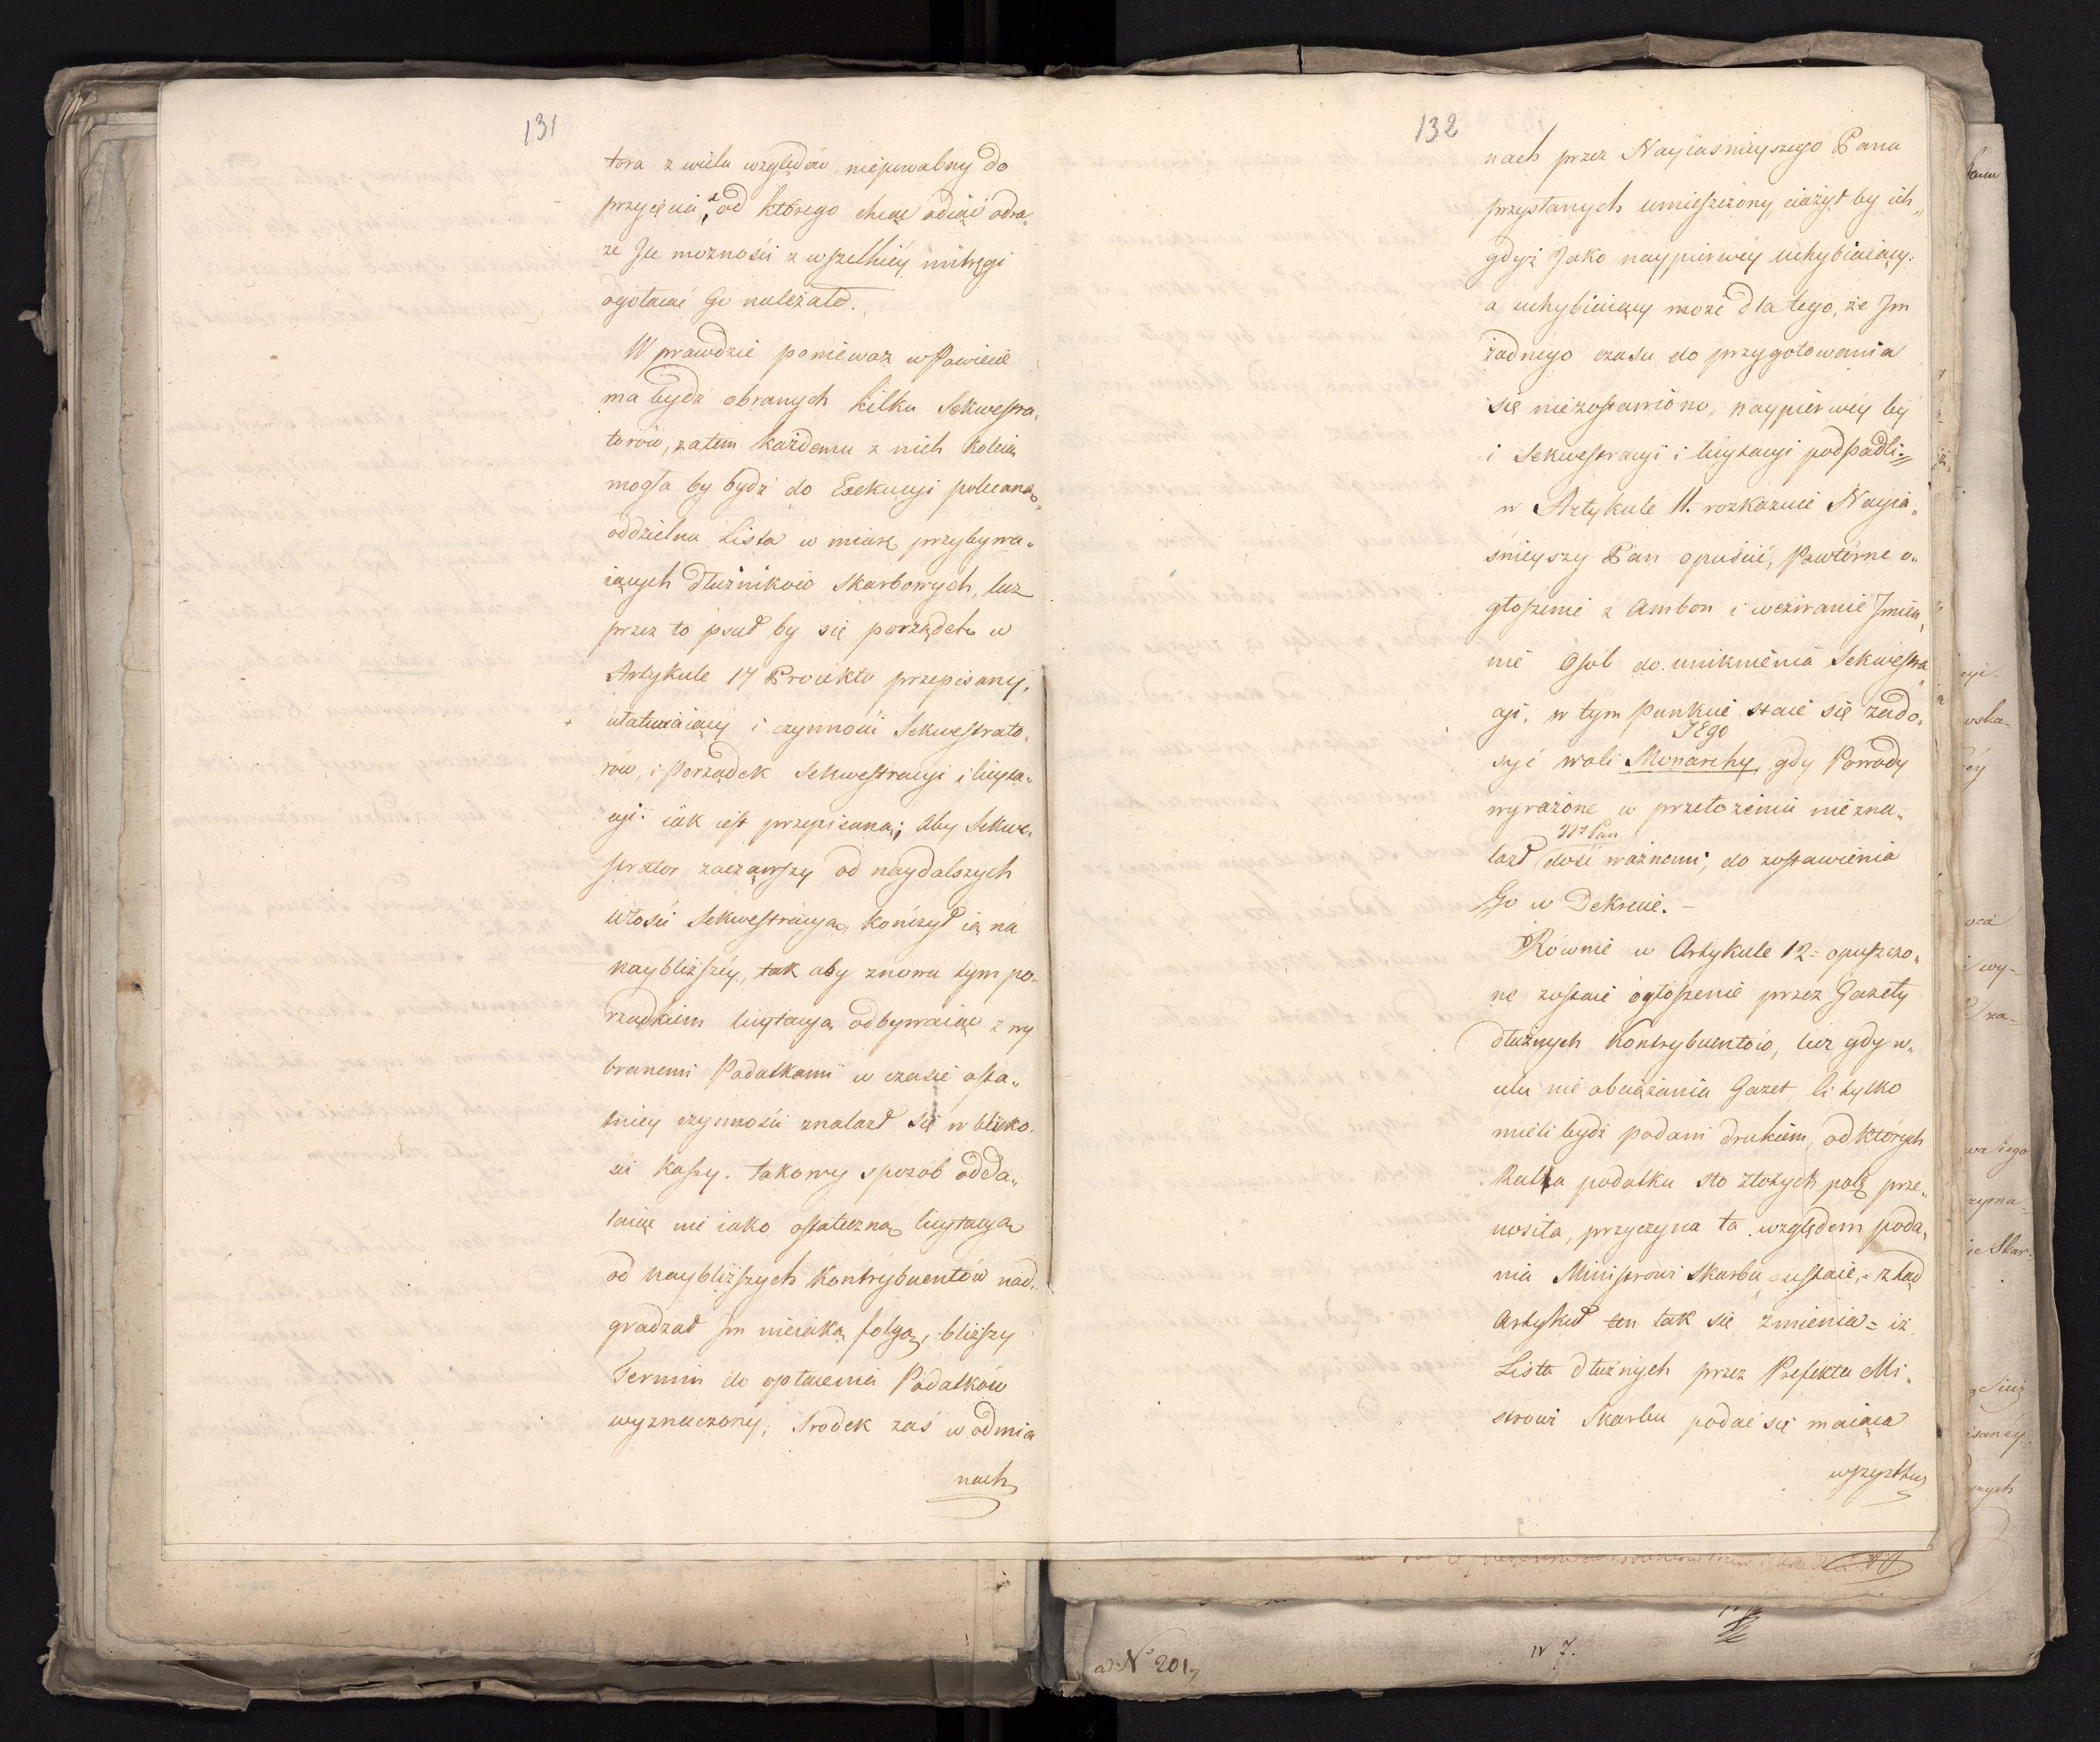 131
tora z wielu względów, niepowabny do
przyięcia, a od którego chcąc odiąć odra„
zę Ile możności z wszelkiéy mitręgi
ogołacać Go należało.
W prawdzie ponieważ w Powiecie
ma bydź obranych kilku Sekwestra„
torów, zatem każdemu z nich koleią
mogła by bydź do Exekucyi polecana,
oddzielna Lista w miarę przybywa„
iących dłużników Skarbowych, lecz
przez to psuł by się porządek w
Artykule 17 Proiektu przepisany,
ułatwiaiący i czynności Sekwestrato„
rów, i Porządek Sekwestracyi i licyta„
cyi: iak iest przepisana; Aby Sekwe„
strator zacząwszy od naydalszych
włości Sekwestracyą, kończył ią na
naybliższéy, tak aby znowu tym po„
rządkiem licytacyą odbywaiąc z wy
branemi Podatkami w czasie osta„
tniey czynności znalazł się w blisko„
ści Kassy. Takowy sposób odda„
laiąc nie iako ostateczną licytacyą
od naybliższych Kontrybuentów nad„
gradzał Im nieiaką folgą, bliższy
Termin do opłacenia Podatków
wyznaczony; Środek zaś w odmia
nach
132
nach przez Nayiaśnieyszego Pana
przysłanych umieszczony, ciążył by ich„
gdyż Jako naypierwéy uchybiaiący:
a uchybiaiący może dla tego, że Im
żadnego czasu do przygotowania
się niezostawiono, naypierwéy by
i Sekwestracyi i licytacyi podpadli.
w Artykule 11. rozkazuie Nayia„
śnieyszy Pan opuścić, Powtórne o„
głoszenie z Ambon i wezwanie Imien„
nie Osób do uniknienia Sekwestra„
cyi, w tym punkcie staie się zado„
syć woli JEgo Monarchy, gdy Powody
wyrażone w przełożeniu nie zna„
lazł Nr Pan dość ważnemi, do zostawienia
Go w Dekrecie. –
Równie w Artykule 12= opuszczo„
ne zostaie ogłoszenie przez Gazety
dłużnych Kontrybuentów, lecz gdy w„
celu nie obciążania Gazet, li tylko
mieli bydź podani drukiem, od których
Ratta podatku sto złotych pol: prze„
nosiła, przyczyna ta względem poda„
nia Ministrowi Skarbu ustaie,= ztąd
Artykuł ten tak się zmienia= iż
Lista dłużnych przez Prefekta Mi„
strowi Skarbu podać się maiąca
wszystkich
a N° 201,
N 7.